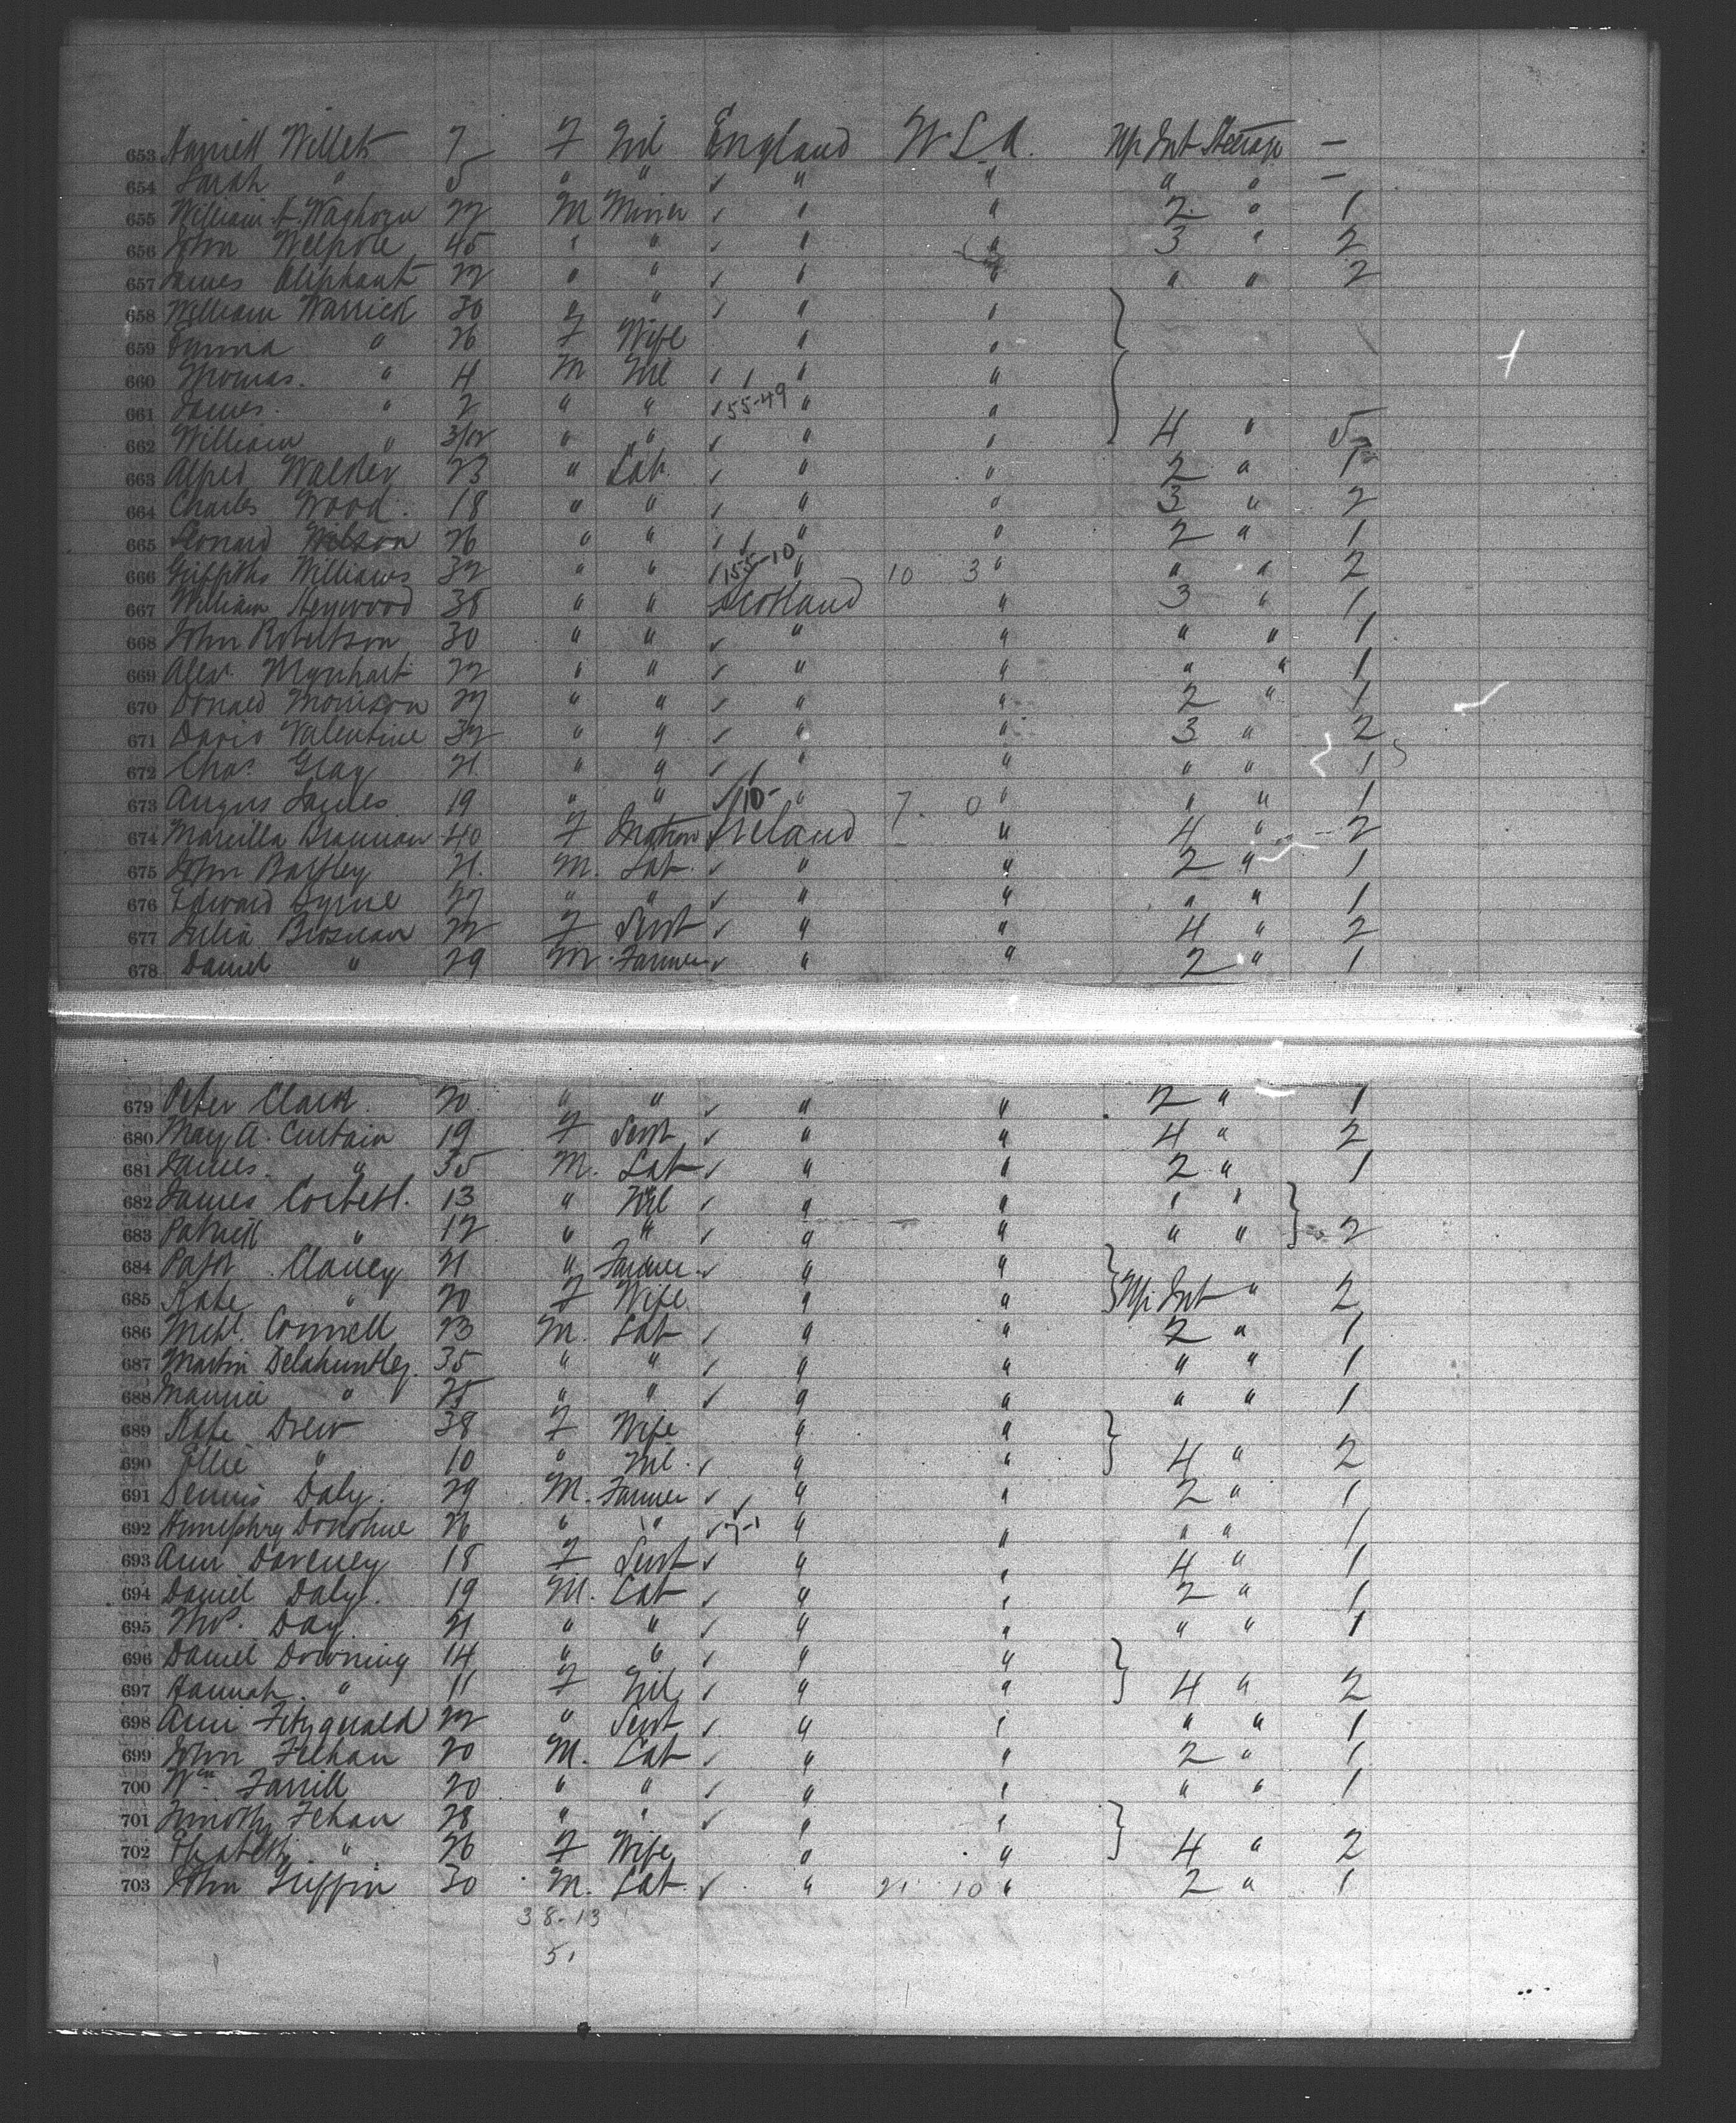 653 Harriett Willets 7 F Nil England U.S.A. Up Int Steerage —
654 Sarah " 5 " " ✓ " " " " —
655 William A. Waghorn 22 M Miner ✓ " " 2 " 1
656 John Welpole 45 " " ✓ " " 3 " 2
657 James Oliphant 22 " " ✓ " " " " 2
658 William Warrick 30 " " ✓ " "
659 Emma " 26 F Wife " "
660 Thomas. " 4 M Nil ✓ " "
661 James. " 2 " " ✓ 55-49 " "
662 William " 3/12 " " ✓ " " 4 " 5
663 Alfred Walder 23 " Lab. ✓ " " 2 " 1
664 Charles Wood. 18 " " ✓ " " 3 " 2
665 Leonard Wilson 26 " " ✓ " " 2 " 1
666 Griffiths Williams 32 " " ✓ 155-10 " 10 3 " " " 2
667 William Heywood 38 " " Scotland " 3 " 1
668 John Robertson 30 " " ✓ " " " " 1
669 Alexr. Mynhart 22 " " ✓ " " " " 1
670 Donald Morrison 27 " " ✓ " " 2 " 1
671 David Valentine 32 " " ✓ " " 3 " 2
672 Chas. Gray 21 " " ✓ " " " " 1
673 Angus James 19 " " ✓ 10- " 7 0 " " " 1
674 Marcilla Brannan 40 F Matron Ireland " 4 " 2
675 John Bartley 21. M. Lab. ✓ " " 2 " 1
676 Edward Byrne 27 " " ✓ " " " " 1
677 Julia Brosnan 22 F Servt ✓ " " 4 " 2
678 Daniel " 29 M. Farmer ✓ " " 2 " 1
679 Peter Clark. 20 " " ✓ " " 2 " 1
680 May A. Curtain 19 F Servt ✓ " " 4 " 2
681 James. " 35 M. Lab ✓ " " 2 " 1
682 James Corbett. 13 " Nil ✓ " " " "
683 Patrick " 12 " " ✓ " " " " 2
684 Patk Clancy 21 " Farmer ✓ " "
685 Kate " 20 F Wife " " Up Int " 2
686 Michl. Connell 23 M. Lab ✓ " " 2 " 1
687 Martin Delahuntley. 35 " " ✓ " " " " 1
688 Maurice " 25 " " ✓ " " " " 1
689 Kate Drew 38 F Wife " "
690 Ellie " 10 " Nil. ✓ " " 4 " 2
691 Dennis Daly. 29 M. Farmer ✓ " " 2 " 1
692 Humphry Donohue 26 " " ✓ 7-1 " " " " 1
693 Ann Daveney 18 F Servt ✓ " " 4 " 1
694 Daniel Daly. 19 M. Lab ✓ " " 2 " 1
695 Thos. Day 21 " " ✓ " " " " 1
696 Daniel Downing 14 " " ✓ " "
697 Hannah. " 11 F Nil ✓ " " 4 " 2
698 Ann Fitzgerald 22 " Servt ✓ " " " " 1
699 John Feehan 20 M. Lab ✓ " " 2 " 1
700 Wm. Farrill 20 " " ✓ " " " " 1
701 Timothy Fehan 28 " " ✓ " "
702 Elizabeth. " 26 F Wife " " 4 " 2
703 John Griffin 30 M. Lab. ✓ " 21 10 " 2 " 1
38-13
51